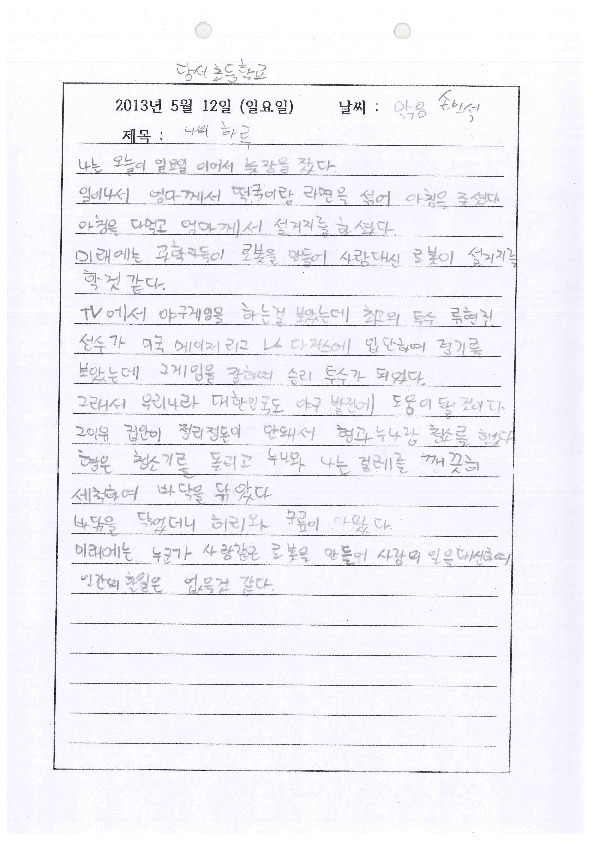 달서초등학교
2013년 5월 12일 (일요일) 날씨 : 맑음 손민석
제목 : 나의 하루
나는 오늘이 일요일 이어서 늦잠을 잤다.
일어나서 엄마께서 떡국이랑 라면을 섞어 아침을 주셨다.
아침을 다먹고 엄마께서 설거지를 하셨다.
미래에는 과학자들이 로봇을 만들어 사람대신 로봇이 설거지를
할것 같다.
TV에서 야구게임을 하는걸 보았는데 최고의 투수 류현진
선수가 미국 메이저리그 LA 다저스에 입단하여 경기를
보았는데 그게임을 잘하여 승리 투수가 되었다.
그래서 우리나라 대한민국도 야구 발전에 도움이 될 것이다.
그이유 집안이 정리정돈이 안돼서 형과 누나랑 청소를 했다
형은 청소기를 돌리고 누나와 나는 걸레를 깨끗히
세척하여 바닥을 닦았다
바닥을 닦았더니 허리와 무릎이 아팠다.
미래에는 누군가 사람같은 로봇을 만들어 사람의 일을 대신하여
인간의 할일은 없을것 같다.